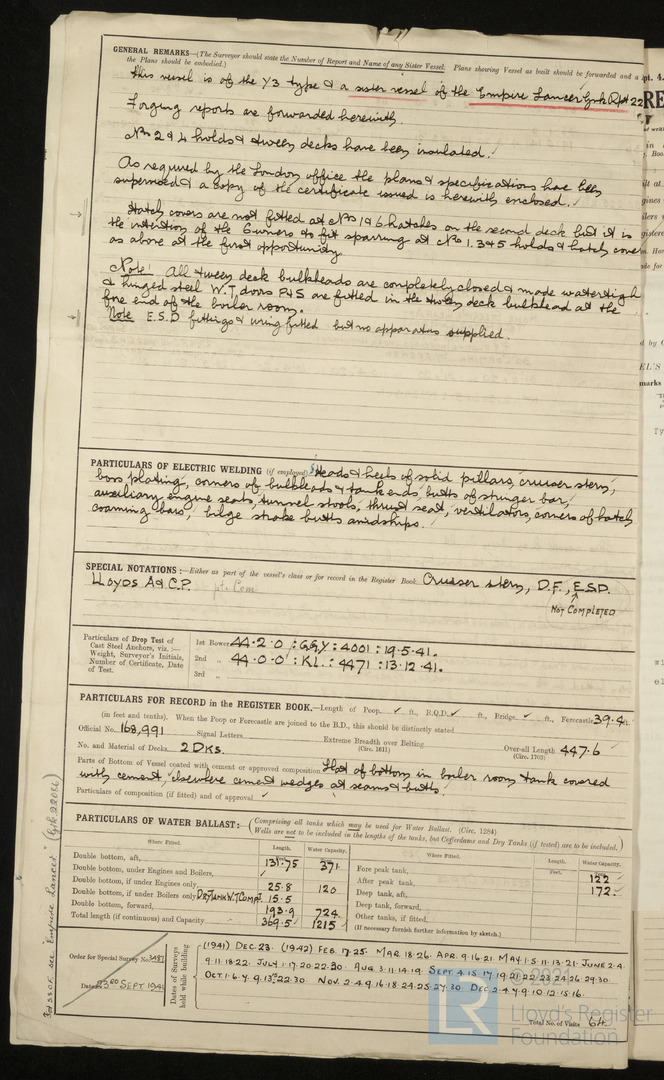 GENERAL REMARKS—(The Surveyor should state the Number of Report and Name of any Sister Vessel. Plans showing Vessel as built should be forwarded and a
the Plans should be embodied.)
This vessel is of the Y3 type & a sister vessel of the Empire Lancer Grk Rpt 22
Forging reports are forwarded herewith.
Nos 2 & 4 holds & tween decks have been insulated.
As required by the London office the plans & specifications have been
supervised & a copy of the certificate issued is herewith enclosed.
Hatch covers are not fitted at Nos 1 & 6 hatches on the second deck but it is
the intention of the Owners to fit sparring at Nos 1. 3 & 5 holds & hatch covers
as above at the first opportunity.
Note! All tween deck bulkheads are completely closed & made watertigh
& hinged steel W.T. doors P & S are fitted in the tween deck bulkhead at the
fore end of the boiler room.
Note E.S.D fittings & wiring fitted but no apparatus supplied.
PARTICULARS OF ELECTRIC WELDING (if employed) Heads & heels of solid pillars, cruiser stern,
boss plating, corners of bulkheads & tank ends, butts of stringer bar,
auxiliary engine seats, tunnel stools, thrust seat, ventilators, corners of hatch
coaming bars, bilge strake butts amidships.
SPECIAL NOTATIONS:—Either as part of the vessel's class or for record in the Register Book Cruiser stern, D.F., E.S.D.
Lloyds A & C.P. pt. Com
NOT COMPLETED
Particulars of Drop Test of
Cast Steel Anchors, viz.:—
Weight, Surveyor's Initials,
Number of Certificate, Date
of Test.
1st Bower 44·2·0 : G.G.Y : 4001 : 19·5·41.
2nd „ 44·0·0 : K.L. : 4471 : 13·12·41.
3rd „
PARTICULARS FOR RECORD in the REGISTER BOOK.—Length of Poop ✓ ft., R.Q.D. ✓ ft., Bridge ✓ ft., Forecastle 39·4 ft.
(in feet and tenths). When the Poop or Forecastle are joined to the B.D., this should be distinctly stated
Official No. 168,991 Signal Letters Extreme Breadth over Belting (Circ. 1611) Over-all Length 447·6 (Circ. 1703)
No. and Material of Decks 2 Dks.
Parts of Bottom of Vessel coated with cement or approved composition Flat of bottom in boiler room tank covered
with cement, elsewhere cement wedges at seams & butts.
Particulars of composition (if fitted) and of approval ✓
PARTICULARS OF WATER BALLAST:— (Comprising all tanks which may be used for Water Ballast. (Circ. 1284)
Wells are not to be included in the lengths of the tanks, but Cofferdams and Dry Tanks (if tested) are to be included.)
Where Fitted. Length. Water Capacity.
Double bottom, aft, 131·75 371
Double bottom, under Engines and Boilers, ✓
Double bottom, if under Engines only 25·8 120
Double bottom, if under Boilers only Dry Tank W.T Compt. 15·5
Double bottom, forward, 193·9 724
Total length (if continuous) and Capacity 369·5 1215
Where Fitted. Length. Feet. Water Capacity.
Fore peak tank, 122
After peak tank, 172
Deep tank, aft,
Deep tank, forward,
Other tanks, if fitted,
(If necessary furnish further information by sketch.)
Order for Special Survey No. 3487
Date 23RD SEPT 1941
Dates of Surveys held while building
(1941) DEC. 23. (1942) FEB. 17. 25. MAR. 18. 26. APR. 9. 16. 21. MAY 1. 5. 11. 13. 21. JUNE 2. 4.
9. 11. 18. 22. JULY 1. 17. 20. 22. 30. AUG 3. 11. 14. 19. SEPT 4. 15. 17. 19. 21. 22. 23. 24. 26. 29. 30.
OCT 1. 6. 7. 9. 13. 22. 30. NOV. 2. 4. 9. 16. 18. 24. 25. 27. 30. DEC 2. 4. 7. 9. 10. 12. 15. 16.
Total No. of Visits 64
see "Empire Lancer" (Grk 22056)
© 2021
LR
Lloyd's Register
Foundation